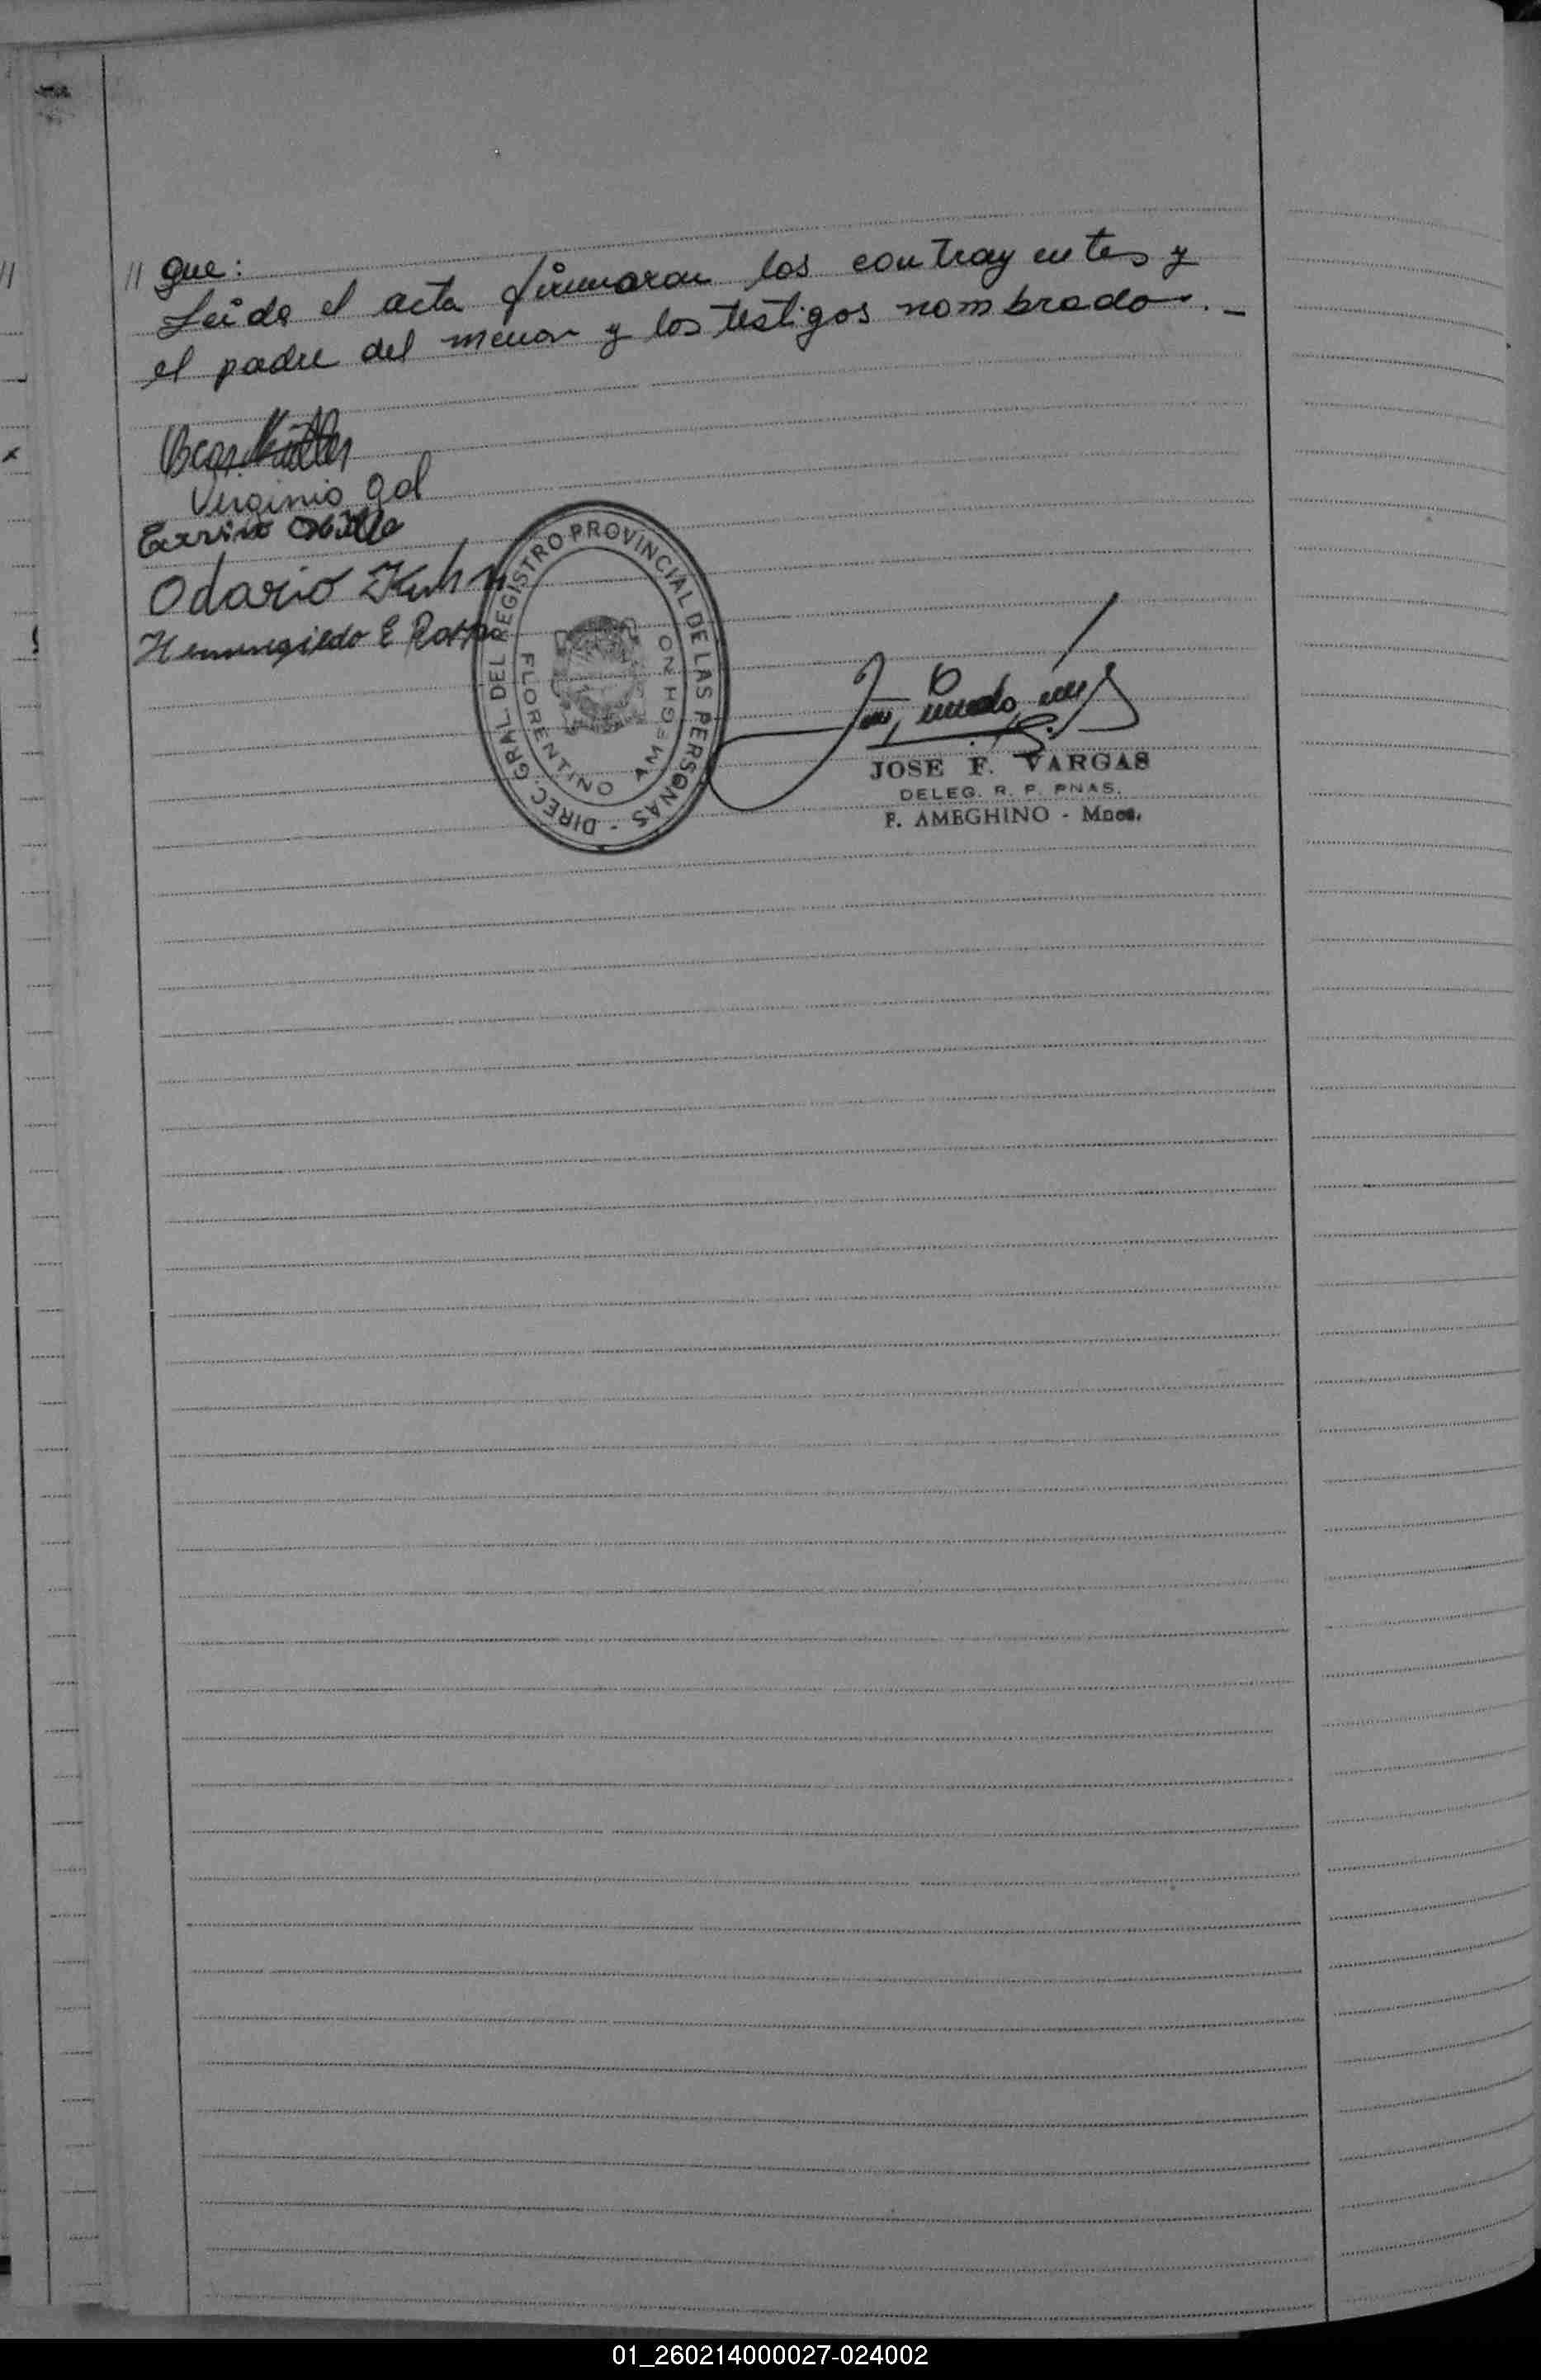 // que:
Leida el acta firmaron los contrayentes y
el padre del menor y los testigos nombrados.-
Virginio Gol
Odario Kuhn
Hermenegildo E
DIREC. GRAL. DEL REGISTRO PROVINCIAL DE LAS PERSONAS -
FLORENTINO AMEGHINO
JOSE F. VARGAS
DELEG. R. P. PNAS.
F. AMEGHINO - Mnes.
01_260214000027-024002